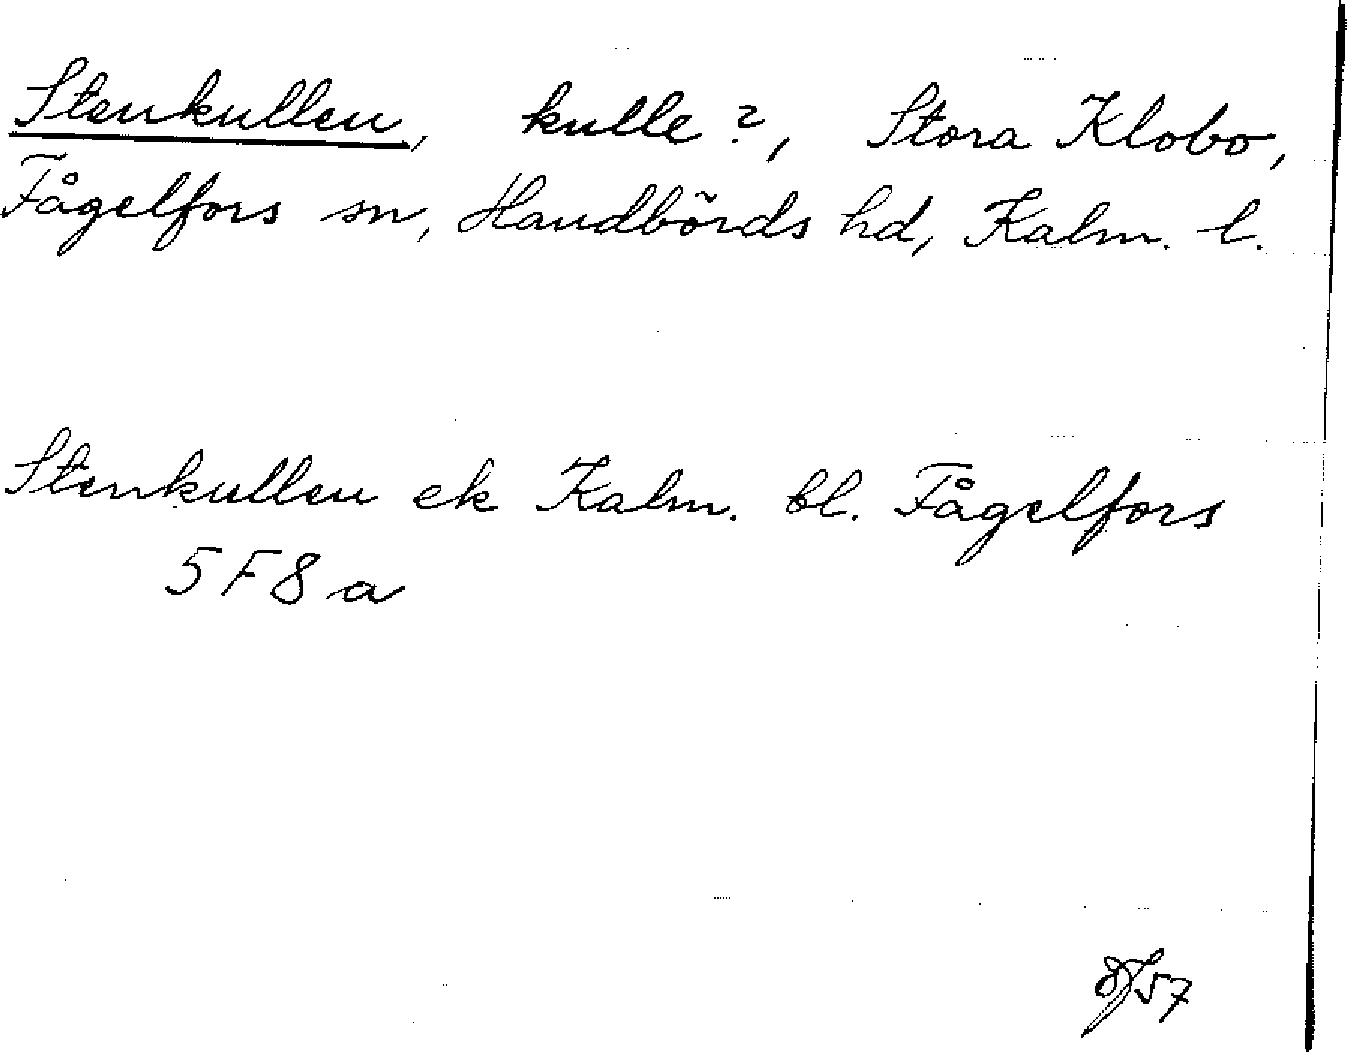 Stenkullen, kulle?, Stora Klobo,
Fågelfors sn, Handbörds hd, Kalm. l.
Stenkullen ek Kalm. bl. Fågelfors
5F8a